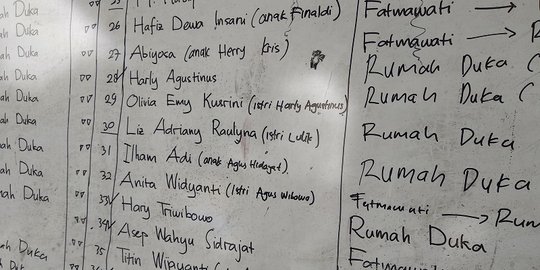 ah Duka
26 Hafiz Dewa Insani (anak Finaldi) Fatmawati →
ah Duka
27 Abiyoca (anak Herry Kris) Fatmawati → R
ah Duka
28 Harly Agustinus Rumah Duka (
ah Duka
29 Olivia Emy Kusrini (istri Harly Agustinus) Rumah Duka (
ah Duka
30 Liz Adriany Raulyna (istri Lulik) Rumah Duka
ah Duka
31 Ilham Adi (anak Agus Hidayat) Rumah Duka
ah Duka
32 Anita Widyanti (Istri Agus Wibowo)
mah Duka
33 Hary Triwibowo Fatmawati → Rum
34 Asep Wahyu Sidrajat Rumah Duka
ah Duka
35 Titin Fatmawati